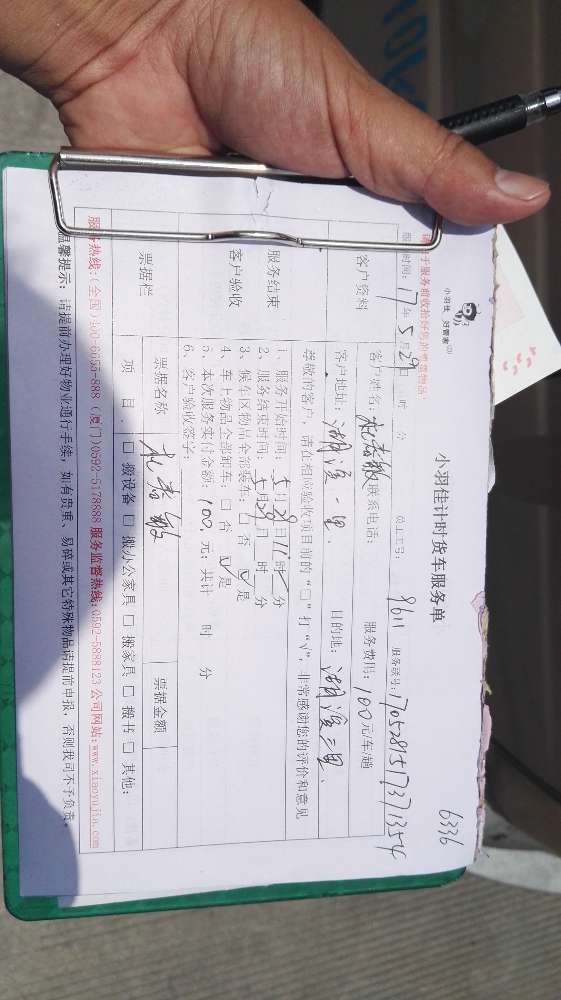 6336
小羽佳 好管家
小羽佳计时货车服务单
请于服务前收拾好您的贵重物品
服务时间：17年5月29日 时 分 员工工号：9611 服务序号：170528151737 1354
客户资料
客户姓名： 联系电话： 服务费用：100元/车/趟
客户地址：湖滨一里. 目的地：湖滨二里.
尊敬的客户，请在相应验收项目前的“□”打“√”，非常感谢您的评价和意见
服务结束
客户验收
1、服务开始时间：5月29日11时 分
2、服务结束时间：5月29日 时 分
3、候车区物品全部装车：□否 ☑是
4、车上物品全部卸车：□否 ☑是
5、本次服务实付金额：100元；共计 时 分
6、客户验收签字：
票据栏
票据名称 票据金额
项 目 □搬设备 □搬办公家具 □搬家具 □搬书 □其他：
服务热线：(全国)400-6655-888 (厦门)0592-5178888 服务监督热线：0592-5888123 公司网站：www.xiaoyujia.com
温馨提示：请提前办理好物业通行手续，如有贵重、易碎或其它特殊物品请提前申报，否则我司不予负责。